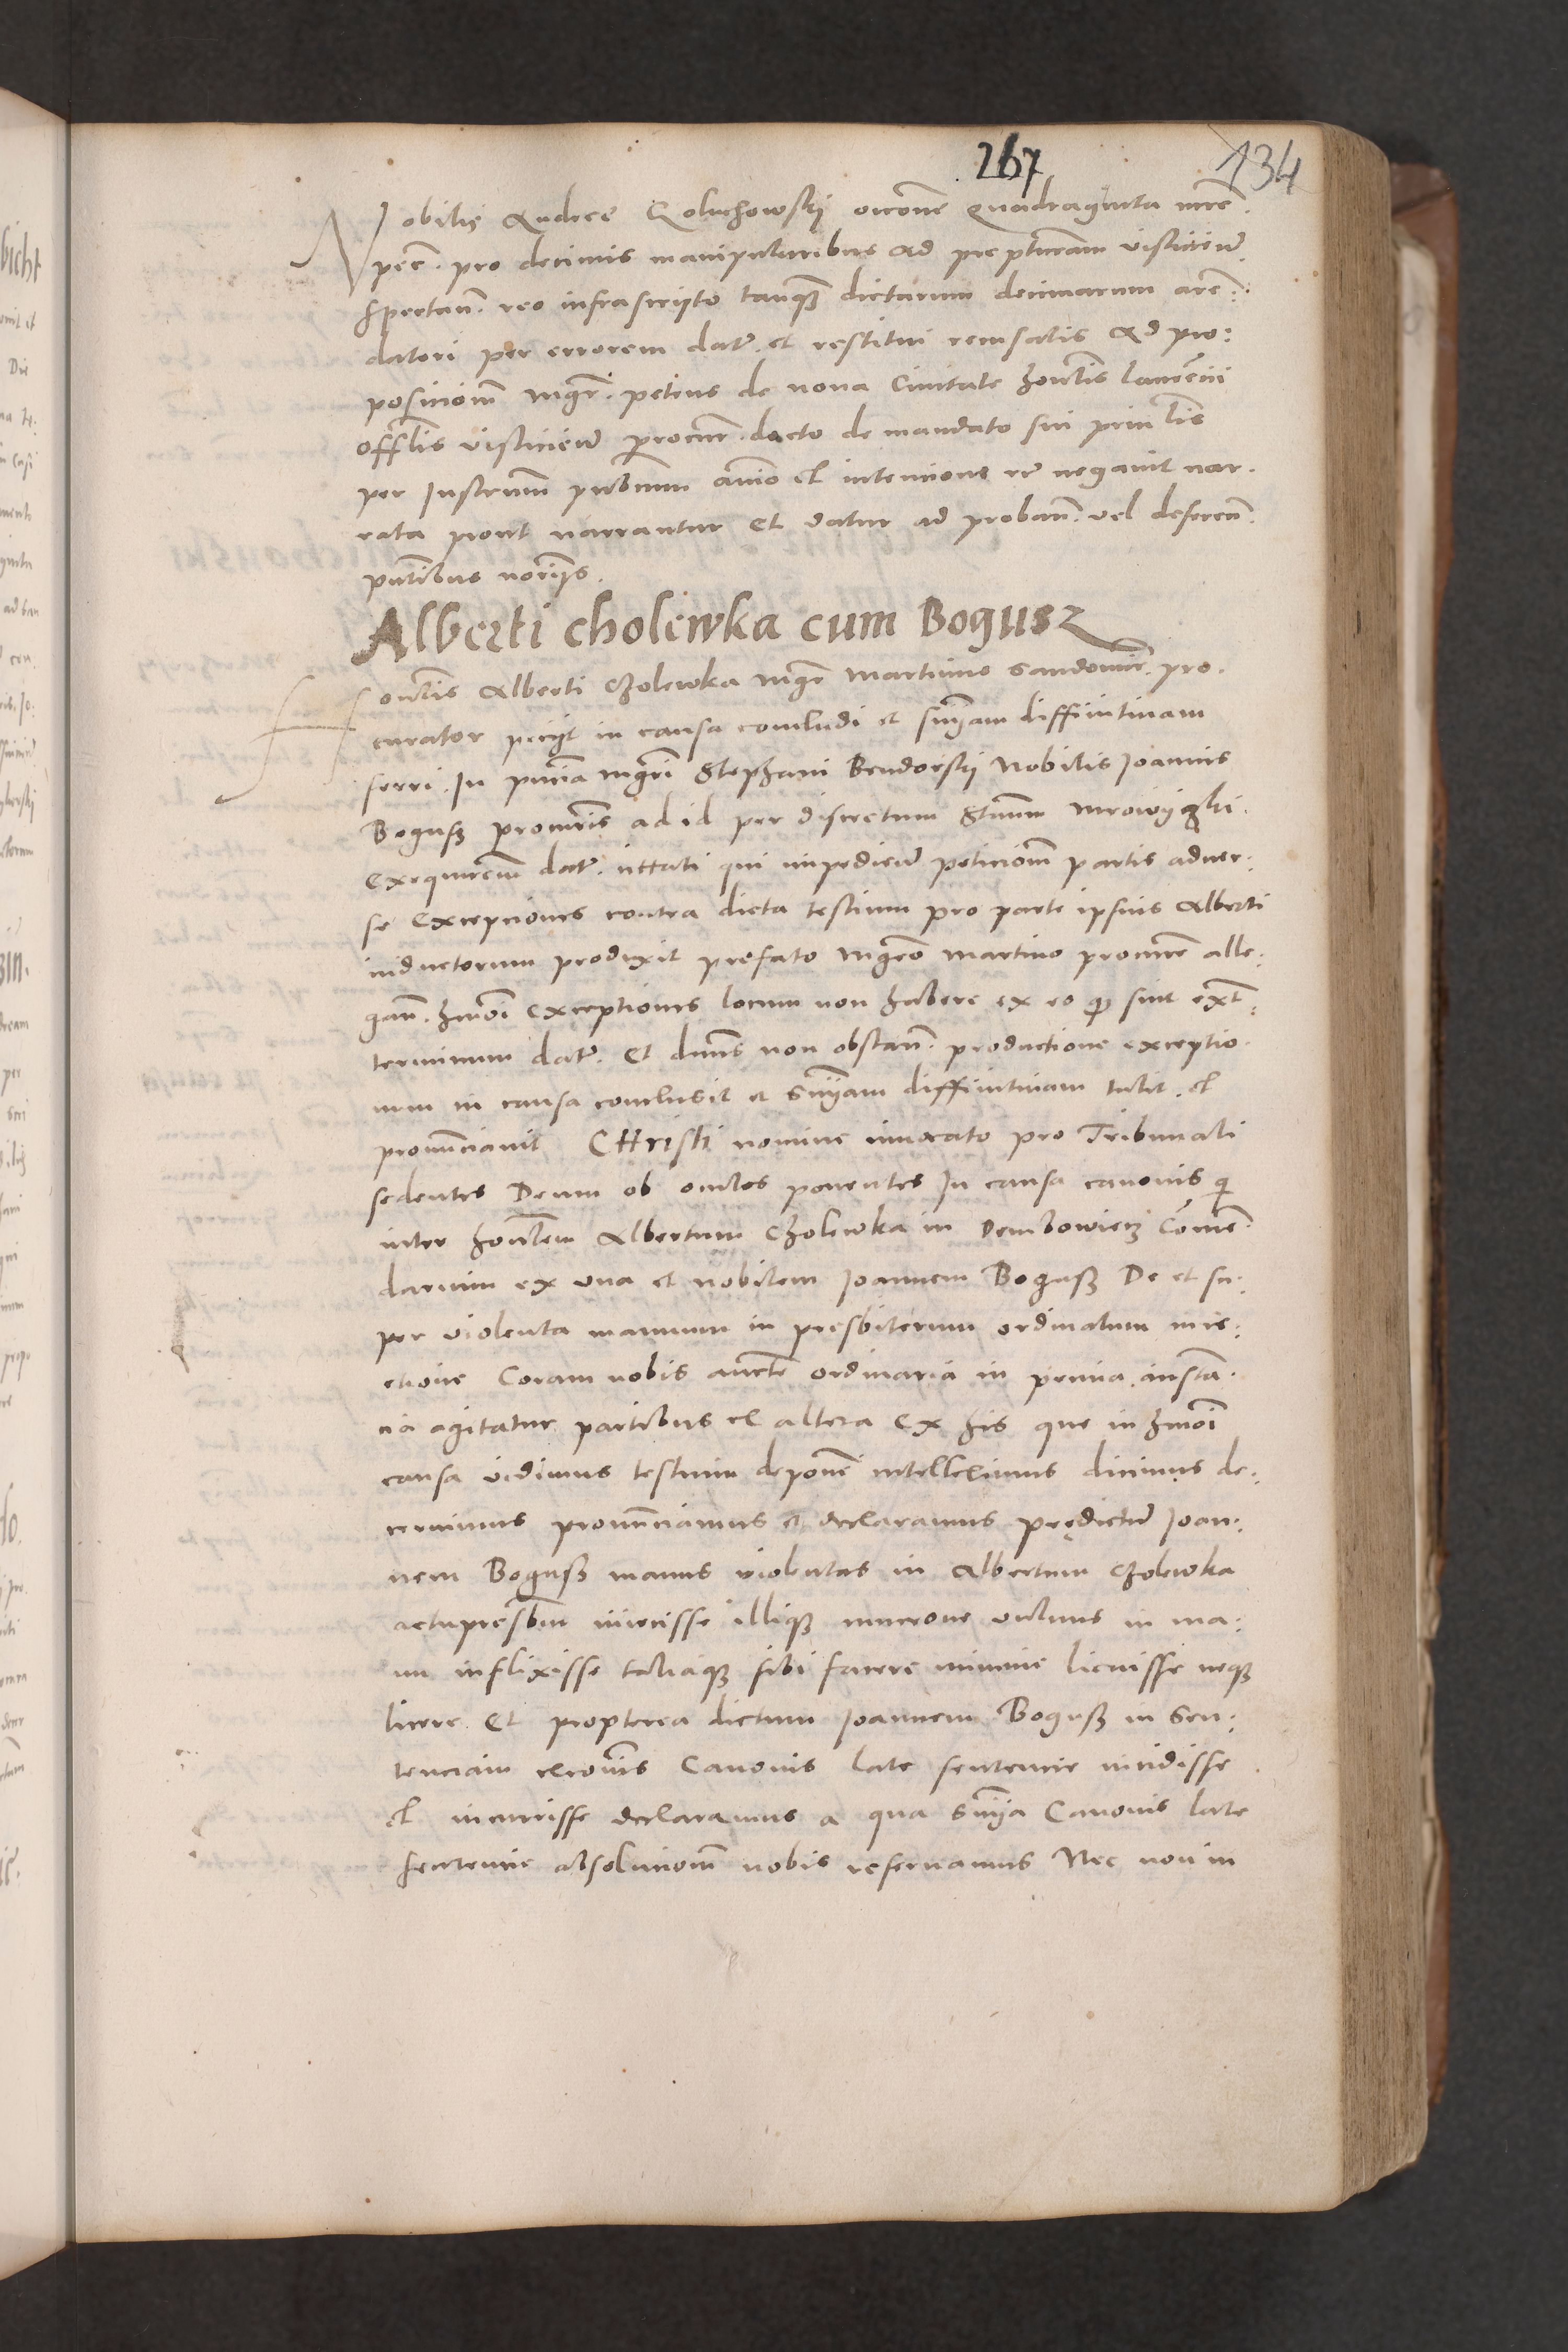 267
134
Nobilis Andree Goluchowskj occone quadraginta mrc.
pec. pro decimis manipularibus ad prepturam visliciem
spectan. reo infrascripto tanq dictarum decimarum aren:
datori per errorem dat. et restitui recusatis ad pro:
posicionem mgri. petrus de nova Civitate honlis laurencii
offlis visliciem procur. docto de mandato sui prinlis
per Instrum publicum animo et intencione etc negavit nar.
rata prout narrantur Et datur ad proban. vel deferen.
pntibus notarijs.
Alberti cholewka cum Bogusz
Honlis Alberti Cholewka mgr martinus Sandomir. pro.
curator petijt in causa concludi et sniam diffinitivam
ferri. In pncia mgri Stephani Bendorskj Nobilis Joannis
Bogusz procuris ad id per discretum Stanm
exequucem dat. cittati qui impediem peticionem partis adver:
se Excepciones contra dicta testium pro parte ipsius Alberti
inductorum produxit prefato mgro martino procure alle:
gan. hmoi exceptiones locum non habere ex eo q sint ext:
terminum dat. Et dnus non obstan. productione exceptio.
num in causa conclusit et snyam diffinitivam tulit. et
pronunciavit CHristi nomine invocato pro Tribunali
sedentes Deum ob oculos ponentes In causa canonis q
inter honlem Albertum Cholewka in Dembowiecz Comen.
darium ex una et nobilem Joannem Bogusz De et su:
per violenta manuum in presbiterum ordinatum inie:
ctione Coram nobis aucte ordinaria in prima instan.
cia agitatur partibus et altera Ex his que in hmoi
causa vidimus testium deponen intelleximus dicimus de:
cernimus pronunciamus et declaramus prędictum Joan:
nem Bogusz manus violentas in Albertum Cholewka
actu presbrm iniecisse illiq mucrone vulnus in ma:
nu inflixisse taliaq sibi facere minime licuisse neq
licere Et propterea dictum Joannem Bogusz in Sen:
tenciam excois Canonis late sentencie incidisse
et incurrisse declaramus a qua Snia Canonis late
sentencie absolucionem nobis reservamus Nec non in